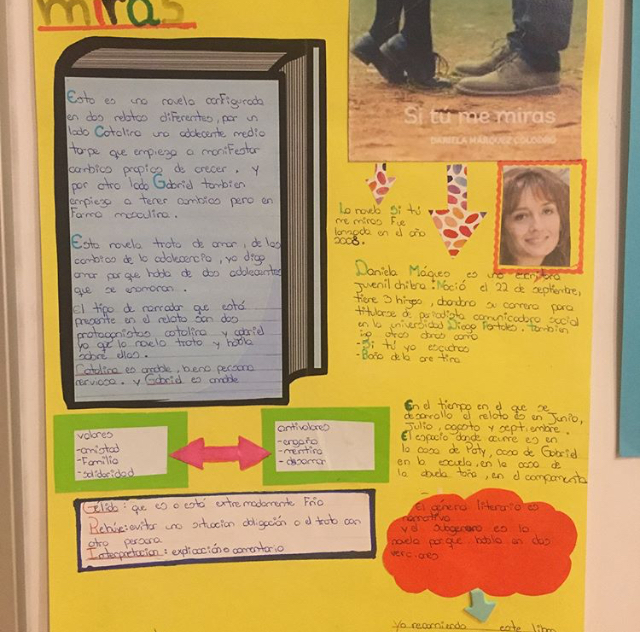 miras
Esta es una novela configurada
en dos relatos diferentes, por un
lado Catalina una adolecente medio
torpe que empieza a manifestar
cambios propios de crecer. y
por otro lado Gabriel tambien
empieza a tener cambios pero en
Forma masculina.
Esta novela trata de amor, de los
cambios de la adolecencia, yo digo
amor porque habla de dos adolecentes
que se enamoran.
El tipo de narrador que está
presente en el relato son dos
protagonistas catalina y gabriel
ya que la novela trata y habla
sobre ellos.
Catalina es amable, buena persona
nerviosa. y Gabriel es amable
Si tú me miras
DANIELA MÁRQUEZ COLODRO
La novela Si tú
me miras Fue
lanzada en el año
2008.
Daniela Máquez es una escritora
juvenil chilena. Nació el 22 de septiembre,
tiene 3 hijos, abandono su carrera para
titularse de periodista comunicadora social
en la universidad Diego Portales. tambien
otras obras como
-Si tú yo escuchas
-Bajo de la
valores
-amistad
-Familia
-solidaridad
antivalores
-engaño
-mentira
-desamor
En el tiempo en el que se
desarrolla el relato es en Junio,
Julio, agosto y septiembre.
El espacio donde ocurre es en
la casa de Paty, casa de Gabriel
en la escuela, en la casa de
la abuela toña, en el campamento
Gélido: que es o está extremadamente Frio
Rehúie: evitar una situacion obligación o el trato con
otra persona.
Interpretacion: explicación o comentario
El género literario es
narrativo
y el Subgenero es la
novela porque habla en dos
versiones
yo recomiendo este libro